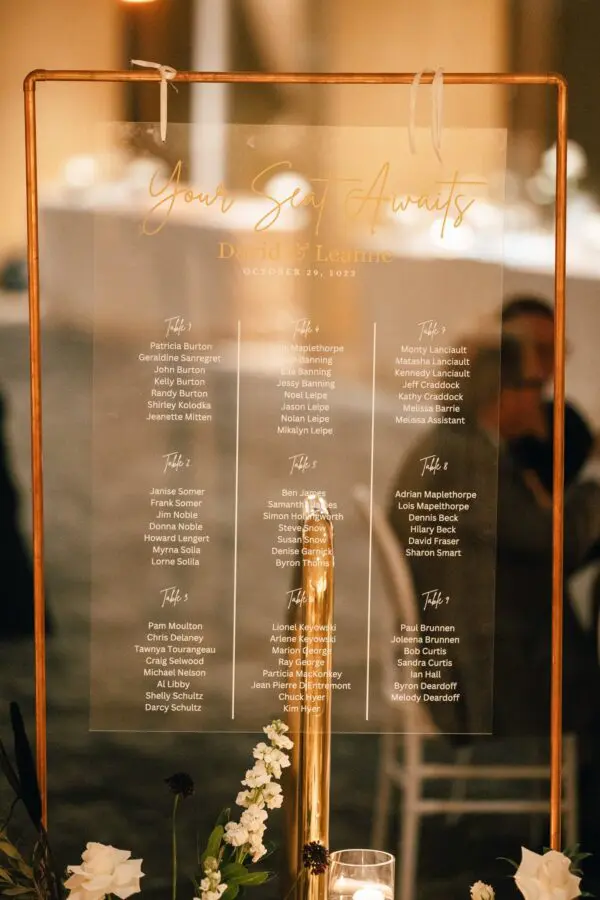 Your Seat Awaits
David & Leanne
OCTOBER 29, 2022
Table 1
Patricia Burton
Geraldine Sanregret
John Burton
Kelly Burton
Randy Burton
Shirley Kolodka
Jeanette Mitten
Table 2
Janise Somer
Frank Somer
Jim Noble
Donna Noble
Howard Lengert
Myrna Solla
Lorne Solilla
Table 3
Pam Moulton
Chris Delaney
Tawnya Tourangeau
Craig Selwood
Michael Nelson
Al Libby
Shelly Schultz
Darcy Schultz
Table 4
Maplethorpe
Banning
Banning
Jessy Banning
Noel Leipe
Jason Leipe
Nolan Leipe
Mikalyn Leipe
Table 5
Ben James
Samantha
Simon Hollingworth
Steve Snow
Susan Snow
Denise Garnick
Byron Thoms
Table
Lionel Keyowski
Arlene Keyowski
Marion George
Ray George
Particia MacKonkey
Jean Pierre D'Entremont
Chuck Hyer
Kim Hyer
Table 7
Monty Lanciault
Matasha Lanciault
Kennedy Lanciault
Jeff Craddock
Kathy Craddock
Melissa Barrie
Melissa Assistant
Table 8
Adrian Maplethorpe
Lois Mapelthorpe
Dennis Beck
Hilary Beck
David Fraser
Sharon Smart
Table 9
Paul Brunnen
Joleena Brunnen
Bob Curtis
Sandra Curtis
Ian Hall
Byron Deardoff
Melody Deardoff